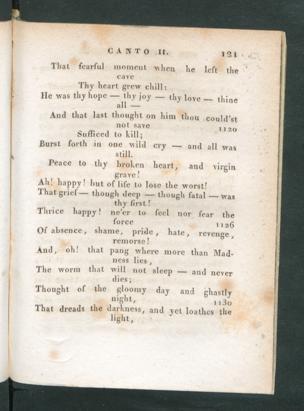 CANTO II. 121
That fearful moment when he left the
cave
Thy heart grew chill:
He was thy hope — thy joy — thy love — thine
all —
And that last thought on him thou could'st
not save 1120
Sufficed to kill;
Burst forth in one wild cry — and all was
still.
Peace to thy broken heart, and virgin
grave!
Ah! happy! but of life to lose the worst!
That grief — though deep — though fatal — was
thy first!
Thrice happy! ne'er to feel nor fear the
force 1126
Of absence, shame, pride, hate, revenge,
remorse!
And, oh! that pang where more than Mad-
ness lies,
The worm that will not sleep — and never
dies;
Thought of the gloomy day and ghastly
night, 1130
That dreads the darkness, and yet loathes the
light,